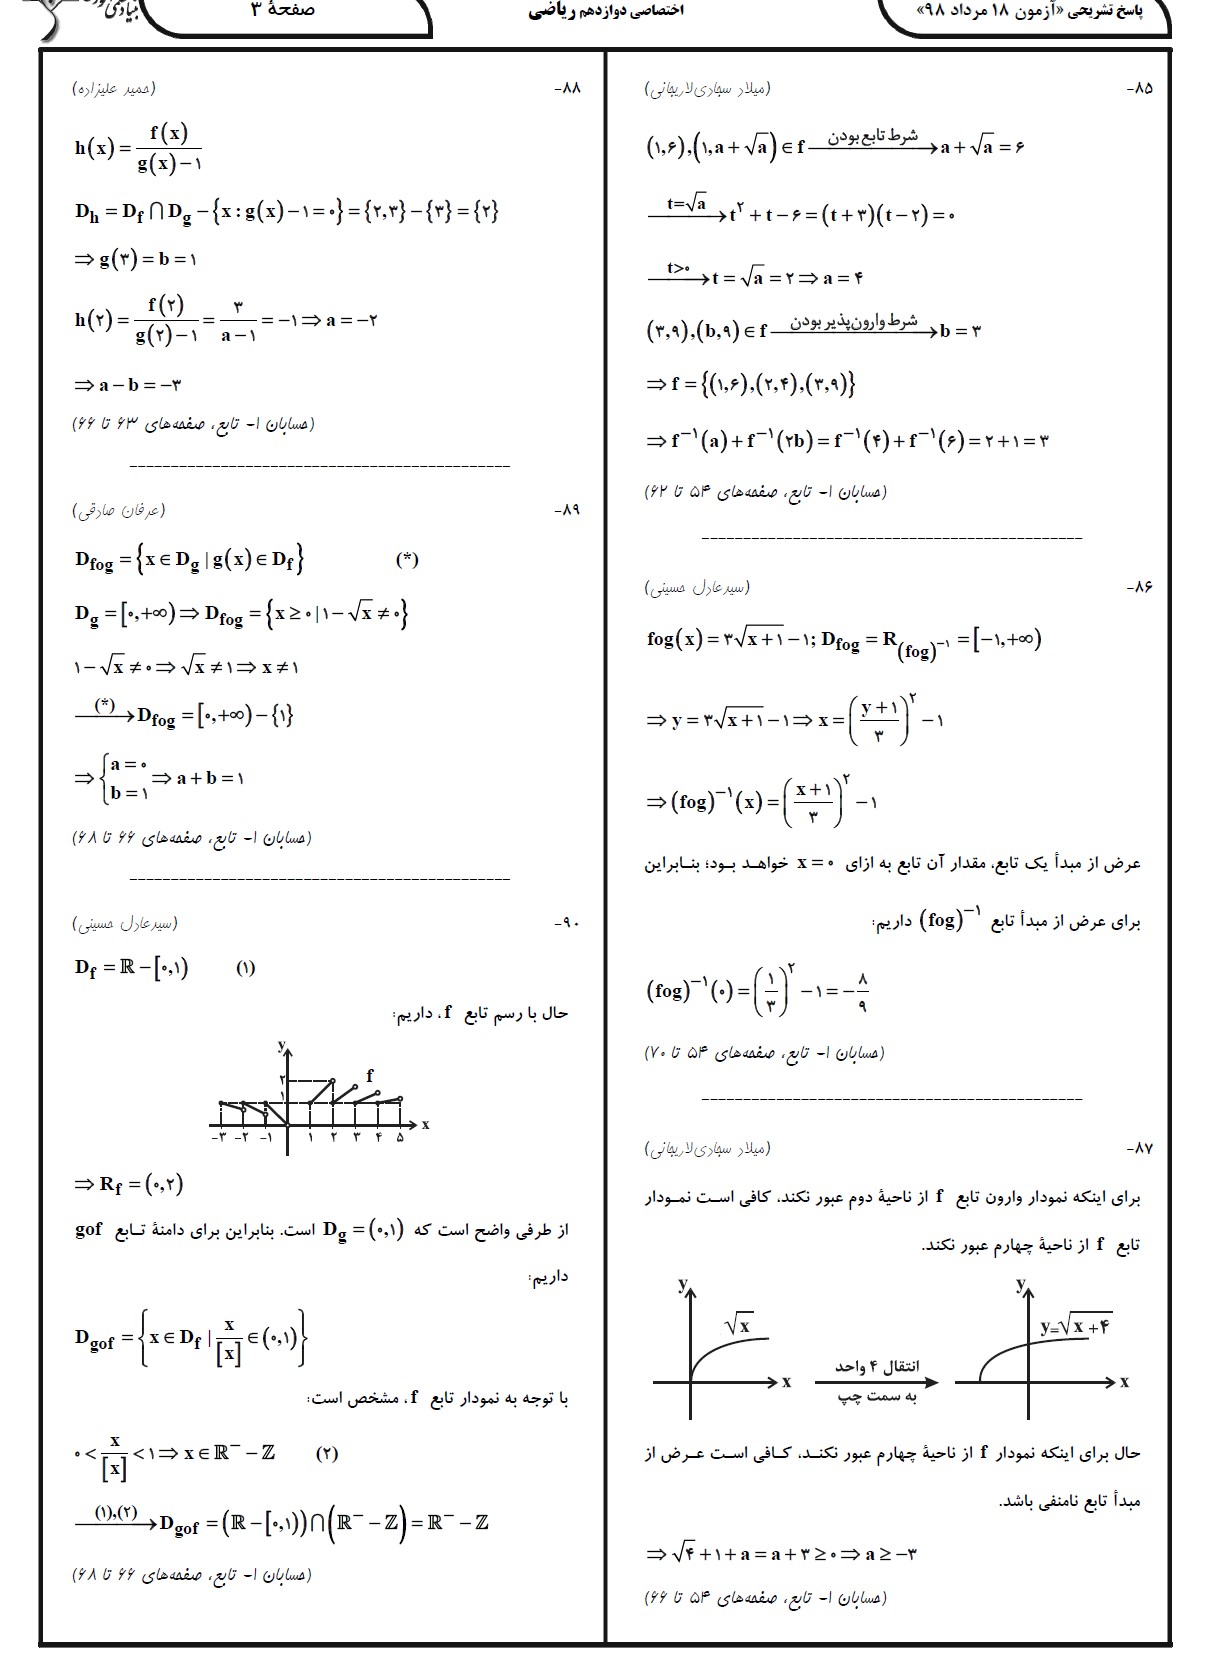 پاسخ تشریحی «آزمون ۱۸ مرداد ۹۸»
اختصاصی دوازدهم ریاضی
صفحهٔ ۳
۸۵- (میلاد سجادی‌لاریجانی)
(۱,۶),(۱,a+√a) ∈ f —شرط تابع بودن→ a+√a = ۶
—t=√a→ t^۲ + t − ۶ = (t+۳)(t−۲) = ۰
—t>۰→ t = √a = ۲ ⇒ a = ۴
(۳,۹),(b,۹) ∈ f —شرط وارون‌پذیر بودن→ b = ۳
⇒ f = {(۱,۶),(۲,۴),(۳,۹)}
⇒ f^−۱(a) + f^−۱(۲b) = f^−۱(۴) + f^−۱(۶) = ۲+۱ = ۳
(حسابان ۱- تابع، صفحه‌های ۵۴ تا ۶۲)
۸۶- (سیدعادل حسینی)
fog(x) = ۳√(x+۱) − ۱; D_fog = R_(fog)^−۱ = [−۱,+∞)
⇒ y = ۳√(x+۱) − ۱ ⇒ x = ((y+۱)/۳)^۲ − ۱
⇒ (fog)^−۱(x) = ((x+۱)/۳)^۲ − ۱
عرض از مبدأ یک تابع، مقدار آن تابع به ازای x = ۰ خواهد بود؛ بنابراین
برای عرض از مبدأ تابع (fog)^−۱ داریم:
(fog)^−۱(۰) = (۱/۳)^۲ − ۱ = −۸/۹
(حسابان ۱- تابع، صفحه‌های ۵۴ تا ۷۰)
۸۷- (میلاد سجادی‌لاریجانی)
برای اینکه نمودار وارون تابع f از ناحیهٔ دوم عبور نکند، کافی است نمودار
تابع f از ناحیهٔ چهارم عبور نکند.
y √x x
انتقال ۴ واحد
به سمت چپ
y y=√(x+۴) x
حال برای اینکه نمودار f از ناحیهٔ چهارم عبور نکند، کافی است عرض از
مبدأ تابع نامنفی باشد.
⇒ √۴ + ۱ + a = a + ۳ ≥ ۰ ⇒ a ≥ −۳
(حسابان ۱- تابع، صفحه‌های ۵۴ تا ۶۶)
۸۸- (حمید علیزاده)
h(x) = f(x)/(g(x)−۱)
D_h = D_f ∩ D_g − {x : g(x) − ۱ = ۰} = {۲,۳} − {۳} = {۲}
⇒ g(۳) = b = ۱
h(۲) = f(۲)/(g(۲)−۱) = ۳/(a−۱) = −۱ ⇒ a = −۲
⇒ a − b = −۳
(حسابان ۱- تابع، صفحه‌های ۶۳ تا ۶۶)
۸۹- (عرفان صادقی)
D_fog = {x ∈ D_g | g(x) ∈ D_f} (*)
D_g = [۰,+∞) ⇒ D_fog = {x ≥ ۰ | ۱ − √x ≠ ۰}
۱ − √x ≠ ۰ ⇒ √x ≠ ۱ ⇒ x ≠ ۱
—(*)→ D_fog = [۰,+∞) − {۱}
⇒ {a = ۰, b = ۱ ⇒ a + b = ۱
(حسابان ۱- تابع، صفحه‌های ۶۶ تا ۶۸)
۹۰- (سیدعادل حسینی)
D_f = ℝ − [۰,۱) (۱)
حال با رسم تابع f، داریم:
y ۲ ۱ f x
−۳ −۲ −۱ ۱ ۲ ۳ ۴ ۵
⇒ R_f = (۰,۲)
از طرفی واضح است که D_g = (۰,۱) است. بنابراین برای دامنهٔ تابع gof
داریم:
D_gof = {x ∈ D_f | x/[x] ∈ (۰,۱)}
با توجه به نمودار تابع f، مشخص است:
۰ < x/[x] < ۱ ⇒ x ∈ ℝ^− − ℤ (۲)
—(۱),(۲)→ D_gof = (ℝ − [۰,۱)) ∩ (ℝ^− − ℤ) = ℝ^− − ℤ
(حسابان ۱- تابع، صفحه‌های ۶۶ تا ۶۸)